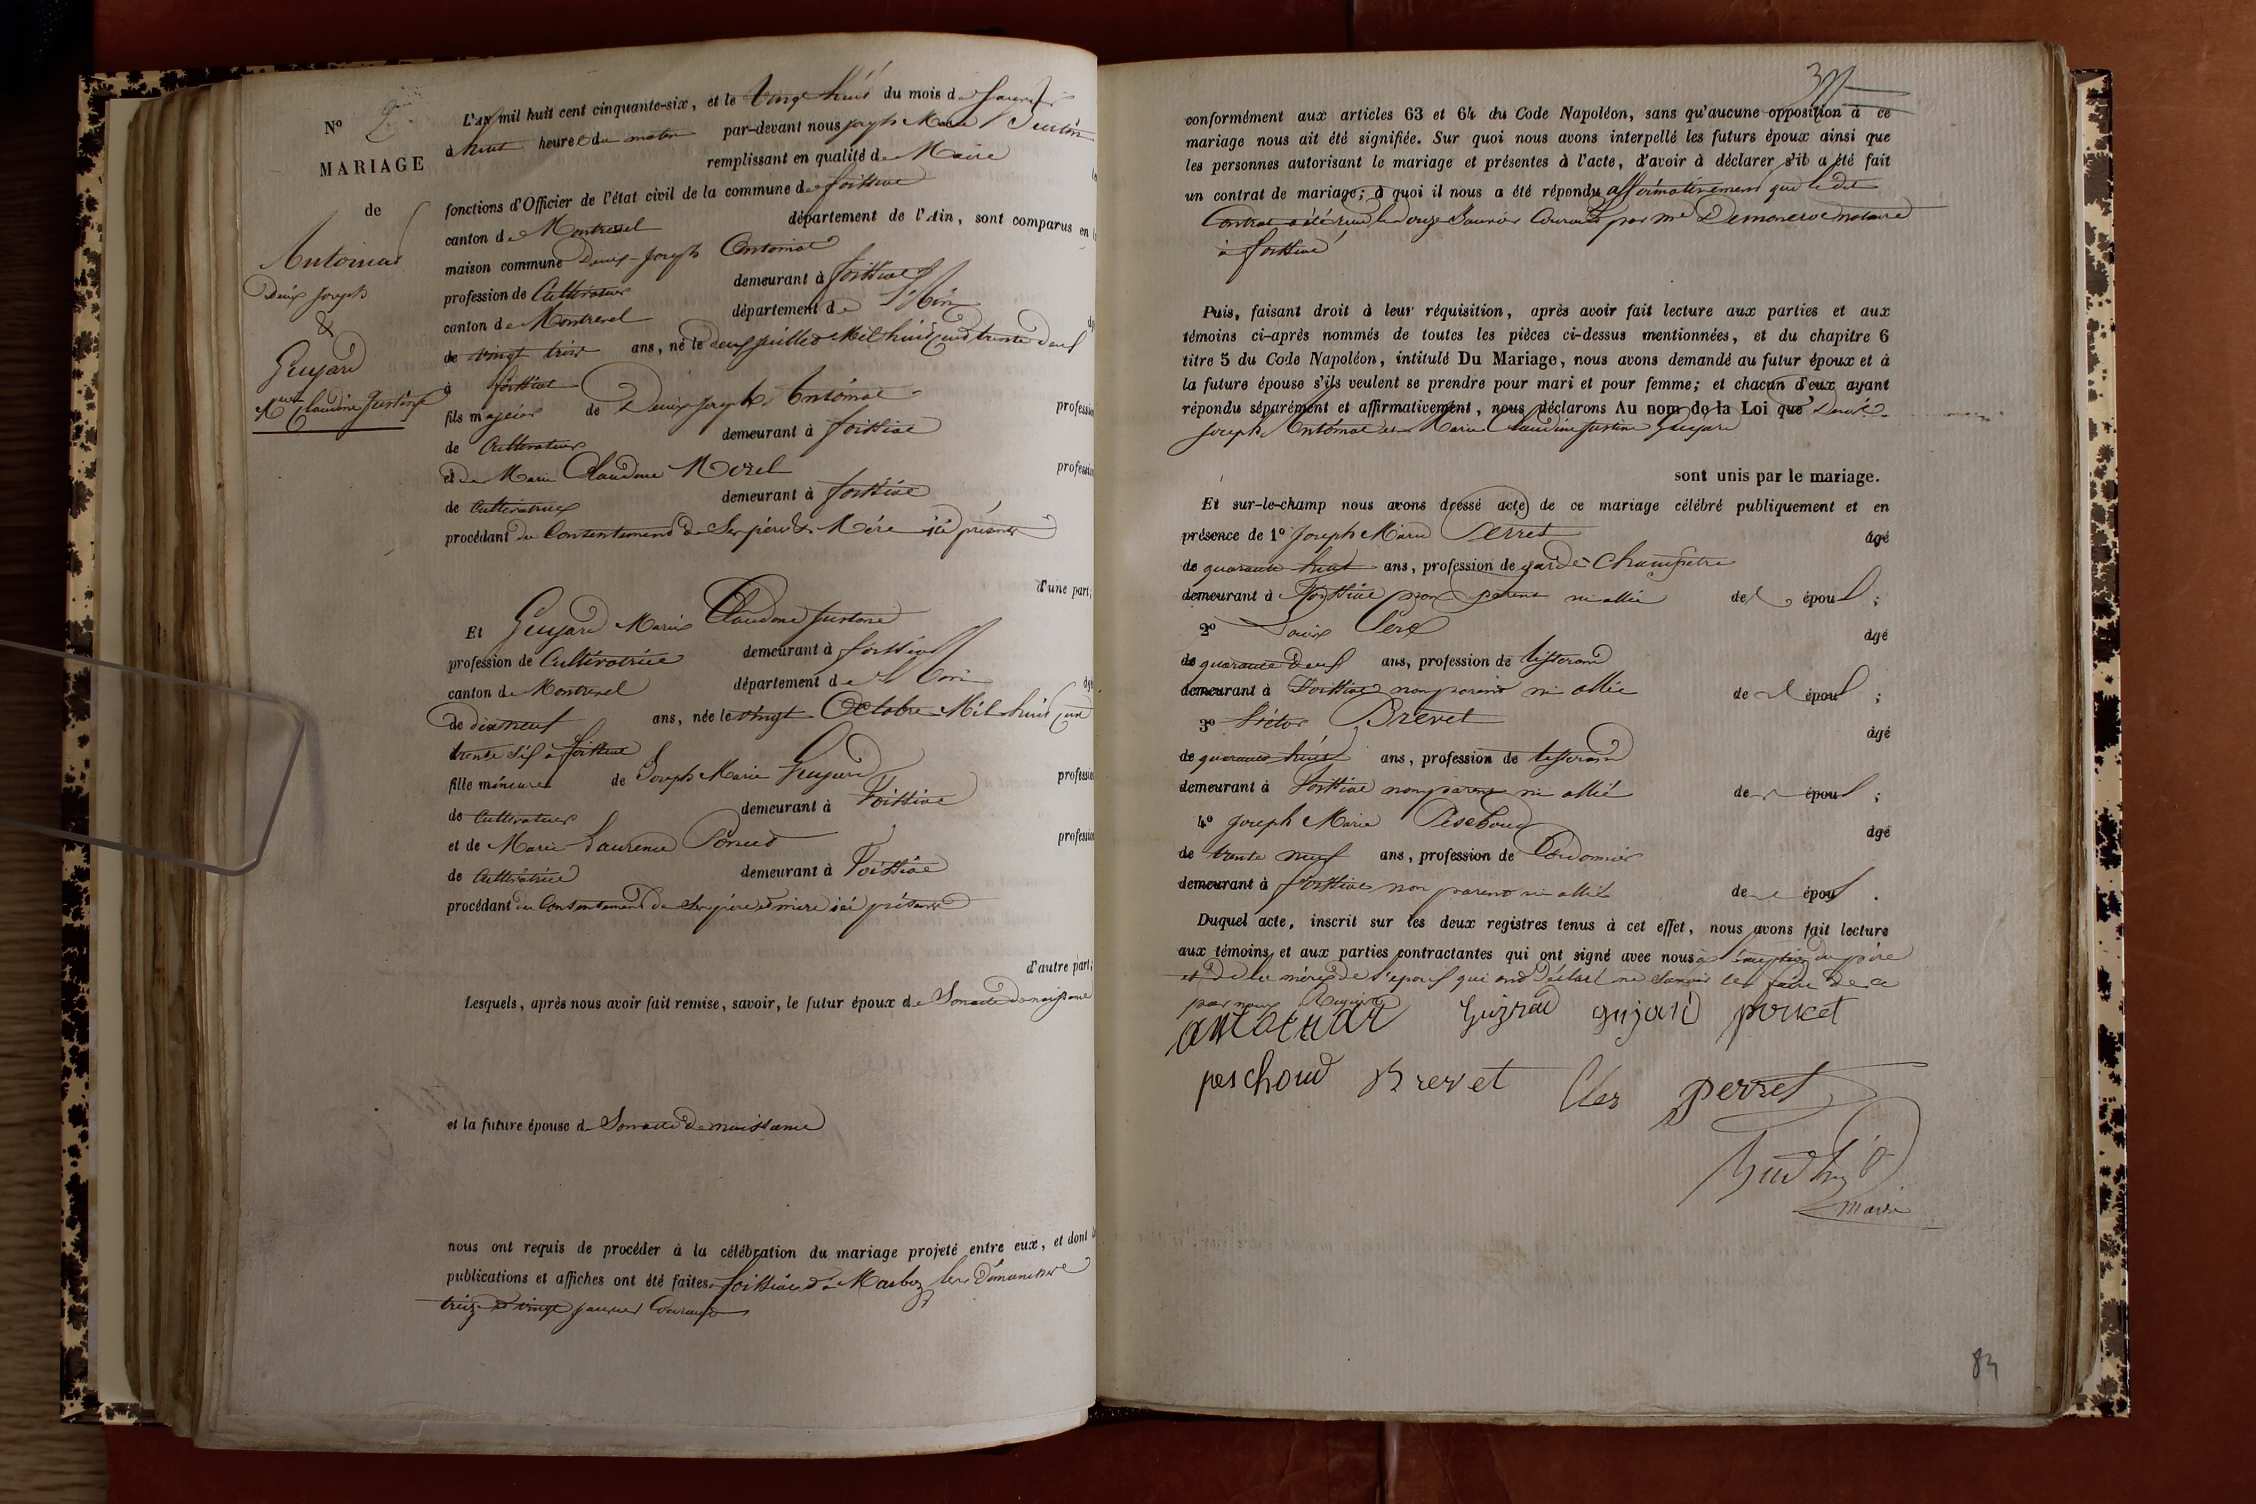 No 2
MARIAGE
de
Antoinat
Denis Joseph
&
Guyard
Mie Claudine Justine
L'AN mil huit cent cinquante-six, et le Vingt huit du mois de Janvier
à huit heures du matin par-devant nous Joseph Marie
remplissant en qualité de Maire
fonctions d'Officier de l'état civil de la commune de foissiat
canton de Montrevel département de l'Ain, sont comparus en
maison commune Denis Joseph Antoinat
profession de Cultivateur demeurant à foissiat
canton de Montrevel département de l'Ain
de vingt trois ans, né le deux juillet Mil huit cent trente deux
à foissiat
fils majeur de Denis Joseph Antoinat profession
de Cultivateur demeurant à foissiat
et de Marie Claudine Morel profession
de Cultivatrice demeurant à foissiat
procédant du Consentement de Ses père & Mère ici présents
d'une part;
Et Guyard Marie Claudine Justine
profession de Cultivatrice demeurant à foissiat
canton de Montrevel département de l'Ain
de dix neuf ans, née le vingt Octobre Mil huit cent
trente six à foissiat
fille mineure de Joseph Marie Guyard profession
de Cultivateur demeurant à Foissiat
et de Marie Laurence Poncet profession
de Cultivatrice demeurant à Foissiat
procédant du Consentement de Ses père et mère ici présents
d'autre part;
Lesquels, après nous avoir fait remise, savoir, le futur époux de Son acte de naissance
et la future épouse de Son acte de naissance
nous ont requis de procéder à la célébration du mariage projeté entre eux, et dont
publications et affiches ont été faites à foissiat et à Marboz les dimanches
treize et vingt janvier Courant
conformément aux articles 63 et 64 du Code Napoléon, sans qu'aucune opposition à ce
mariage nous ait été signifiée. Sur quoi nous avons interpellé les futurs époux ainsi que
les personnes autorisant le mariage et présentes à l'acte, d'avoir à déclarer s'il a été fait
un contrat de mariage; à quoi il nous a été répondu affirmativement que le dit
Contrat a été reçu le douze Janvier Courant par me notaire
à foissiat
Puis, faisant droit à leur réquisition, après avoir fait lecture aux parties et aux
témoins ci-après nommés de toutes les pièces ci-dessus mentionnées, et du chapitre 6
titre 5 du Code Napoléon, intitulé Du Mariage, nous avons demandé au futur époux et à
la future épouse s'ils veulent se prendre pour mari et pour femme; et chacun d'eux ayant
répondu séparément et affirmativement, nous déclarons Au nom de la Loi que Denis
Joseph Antoinat et Marie Claudine Justine Guyard
sont unis par le mariage.
Et sur-le-champ nous avons dressé acte de ce mariage célébré publiquement et en
présence de 1o Joseph Marie Perret âgé
de quarante huit ans, profession de garde Champêtre
demeurant à Foissiat non parent ni allié de époux;
2o Louis âgé
de quarante deux ans, profession de tisserand
demeurant à Foissiat non parent ni allié de époux;
3o Victor Brevet âgé
de quarante huit ans, profession de tisserand
demeurant à Foissiat non parent ni allié de époux;
4o Joseph Marie Peschoud âgé
de trente neuf ans, profession de Cordonnier
demeurant à foissiat non parent ni allié de époux.
Duquel acte, inscrit sur les deux registres tenus à cet effet, nous avons fait lecture
aux témoins et aux parties contractantes qui ont signé avec nous à l'exception du père
et de la mère de l'époux qui ont déclaré ne savoir le faire de ce
par nous Requis
antoinat guyard guyard poncet
peschoud Brevet perret
maire
84